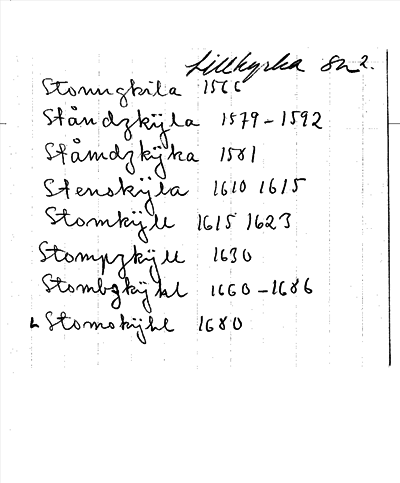 Lillkyrka sn 2.
Stomgkila 1566
Ståndzkÿla 1579-1592
Ståmdzkÿka 1581
Stenskÿla 1610 1615
Stomkÿll 1615 1623
Stompzkÿll 1630
Stombzkÿhl 1660-1686
Stomskÿhl 1680